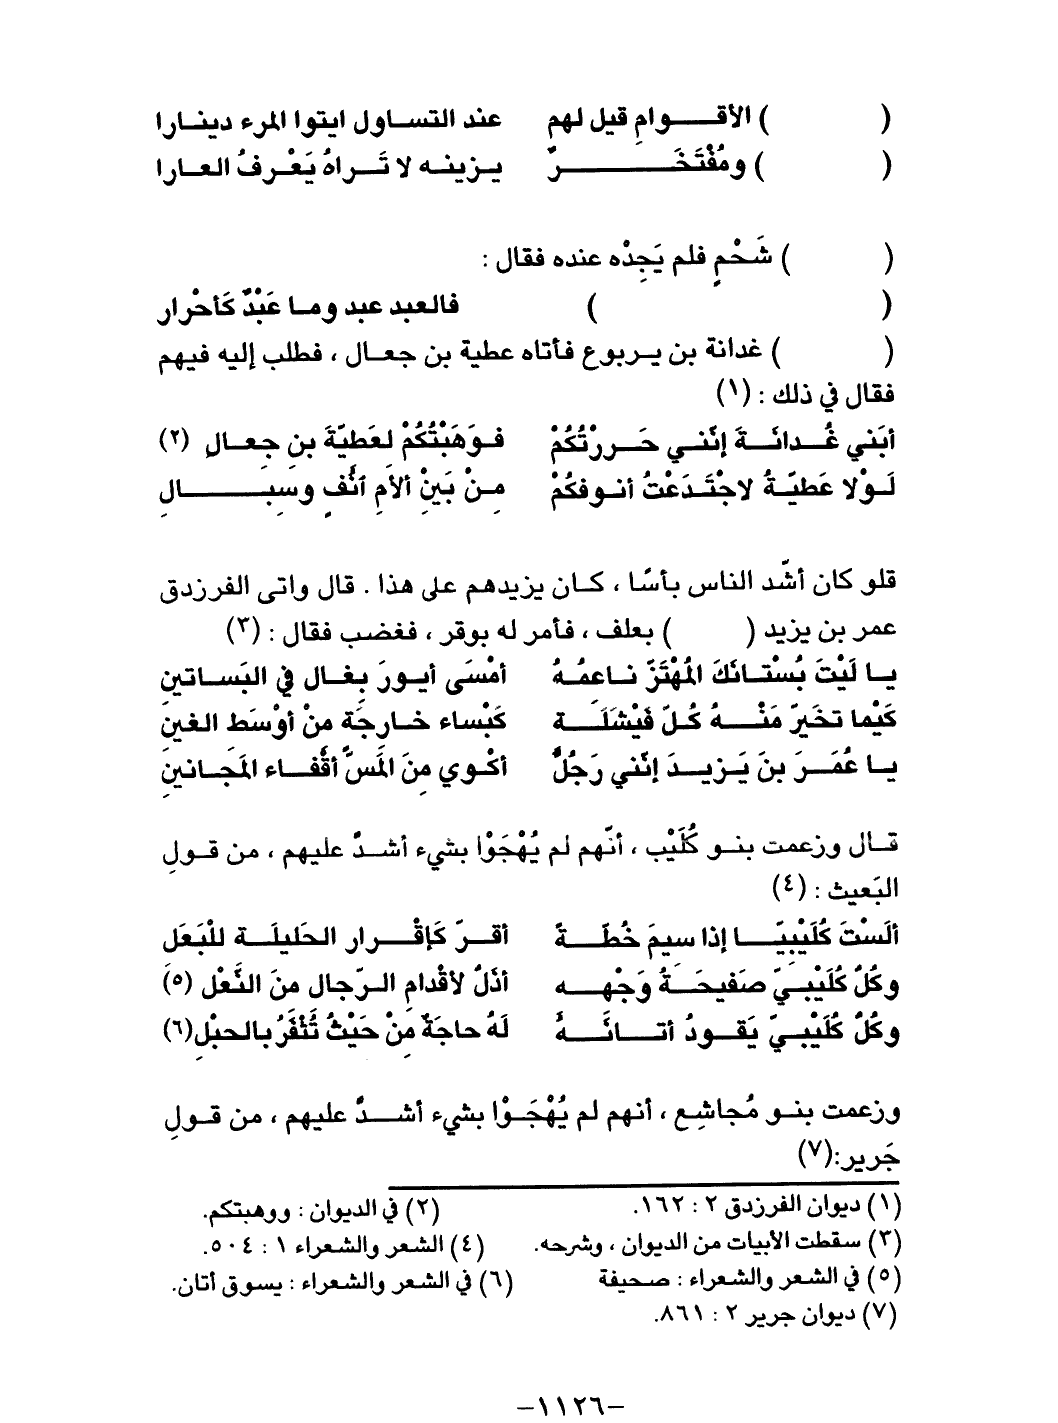 (          ) الأقـــوامِ قيل لهم     عند التسـاول ايتوا المرء دينـارا
(          ) ومُفْتَخَـــــــرٌ     يـزينـه لا تَـراهُ يَعْـرفُ العـارا
(          ) شَحْمٍ فلم يَجِدْه عنده فقال :
(                    )     فالعبد عبد ومـا عَبْدٌ كَأحْرار
(          ) غدانة بن يـربوع فأتاه عطية بن جعـال ، فطلب إليه فيهم
فقال في ذلك : (١)
أبَني غُـدانَـةَ إنّنـي حَـررْتُكُمْ     فـوَهَبْتُكُمْ لعَطيّةَ بنِ جِعـالِ (٢)
لَـوْلا عَطيّـةُ لاجْتَـدَعْتُ أنـوفكُمْ     مِـنْ بَيْنِ ألأمِ آنُفٍ وسِبـــالِ
قلو كان أشّد الناس بأسًا ، كـان يزيدهم على هذا . قال واتى الفرزدق
عمر بن يزيد (          ) بعلف ، فأمر له بوقر ، فغضب فقال : (٣)
يـا لَيْتَ بُسْتـانَكَ المُهْتَزّ نـاعِمُـهُ     أمْسَى أيـورَ بِغـال في البَسـاتينِ
كَيْما تخَيرّ مَنْـهُ كُـلّ فَيْشَلَـة     كَبْساء خـارجَة منْ أوْسَط الغين
يـا عُمَـرَ بنَ يَـزيـدَ إنّني رَجُلٌ     أكْـوي مِنَ المَسِّ أقْفـاء المَجـانينِ
قـال وزعمت بنـو كُلَيْب ، أنّهم لم يُهْجَـوْا بشيء أشـدّ عليهم ، من قـولِ
البَعيث : (٤)
ألَسْتَ كُلَيْبِيّـا إذا سيمَ خُطّـةً     أقـرّ كَإقْـرار الحَليلَـة للْبَعَل
وكُلّ كُلَيْبـيّ صَفيحَـةُ وَجْهـه     أذَلّ لأقْدامِ الـرّجال منَ النَّعْل (٥)
وكُلّ كُلَيْبيّ يَقـودُ أتـانَـهُ     لَهُ حاجَةٌ مِنْ حَيْثُ تُثْفَرُ بالحبْلِ(٦)
وزعمت بنـو مُجاشِع ، أنهم لم يُهْجَـوْا بشيء أشـدّ عليهم ، من قـولِ
جَرير:(٧)
(١) ديوان الفرزدق ٢ : ١٦٢.     (٢) في الديوان : ووهبتكم.
(٣) سقطت الأبيات من الديوان ، وشرحه.     (٤) الشعر والشعراء ١ : ٥٠٤.
(٥) في الشعر والشعراء : صحيفة     (٦) في الشعر والشعراء : يسوق أتان.
(٧) ديوان جرير ٢ : ٨٦١.
-١١٢٦-